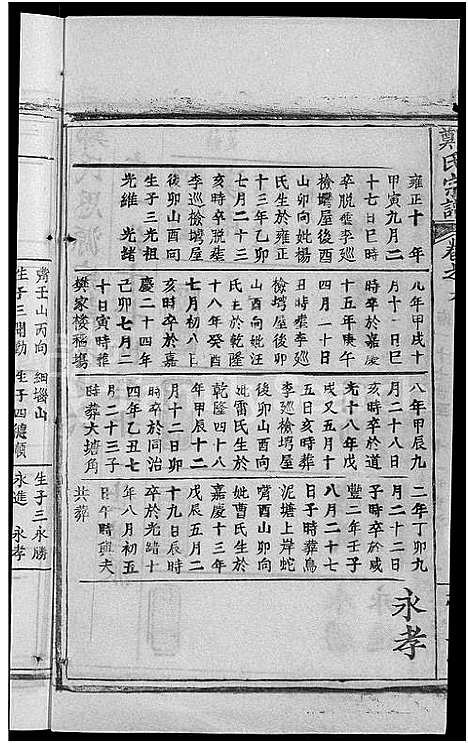 鄭氏宗譜
卷之
雍正十年
甲寅九月二
十七日巳時
卒脫葬李廵
檢塆屋後酉
山卯向妣楊
氏生於雍正
十三年乙卯
七月二十三
亥時卒脫葬
李廵檢塆屋
後卯山酉向
生子三光祖
光維 光緒
九年甲戌十
月十一日巳
時卒於嘉慶
十五年庚午
四月一十日
亥時葬李廵
檢塆屋後卯
山酉向妣汪
氏生於乾隆
十八年癸酉
七月初八日
亥時卒於嘉
慶二十四年
己卯七月二
十日寅時葬
樊家楼稻塲
八年甲辰九
月二十八日
亥時卒於道
光十八年戊
戌又五月十
五日亥時葬
李廵檢塆屋
妣雷氏生於
乾隆四十九
年甲辰十二
月十二日卯
時卒於同治
四年乙丑七
月二十三子
時葬大塘角
二年丁卯九
月二十二日
子時卒於咸
豐二年壬子
八月二十七
日子時葬鳥
泥塘上岸蛇
嘴酉山卯向
妣曹氏生於
嘉慶十三年
戊辰五月二
十九日辰時
卒於光緒十
年八月初五
日午時與夫
共葬
永孝
嘴壬山丙向
生子三開勤
細塆山
生子四德順
生子三永勝
永進 永孝